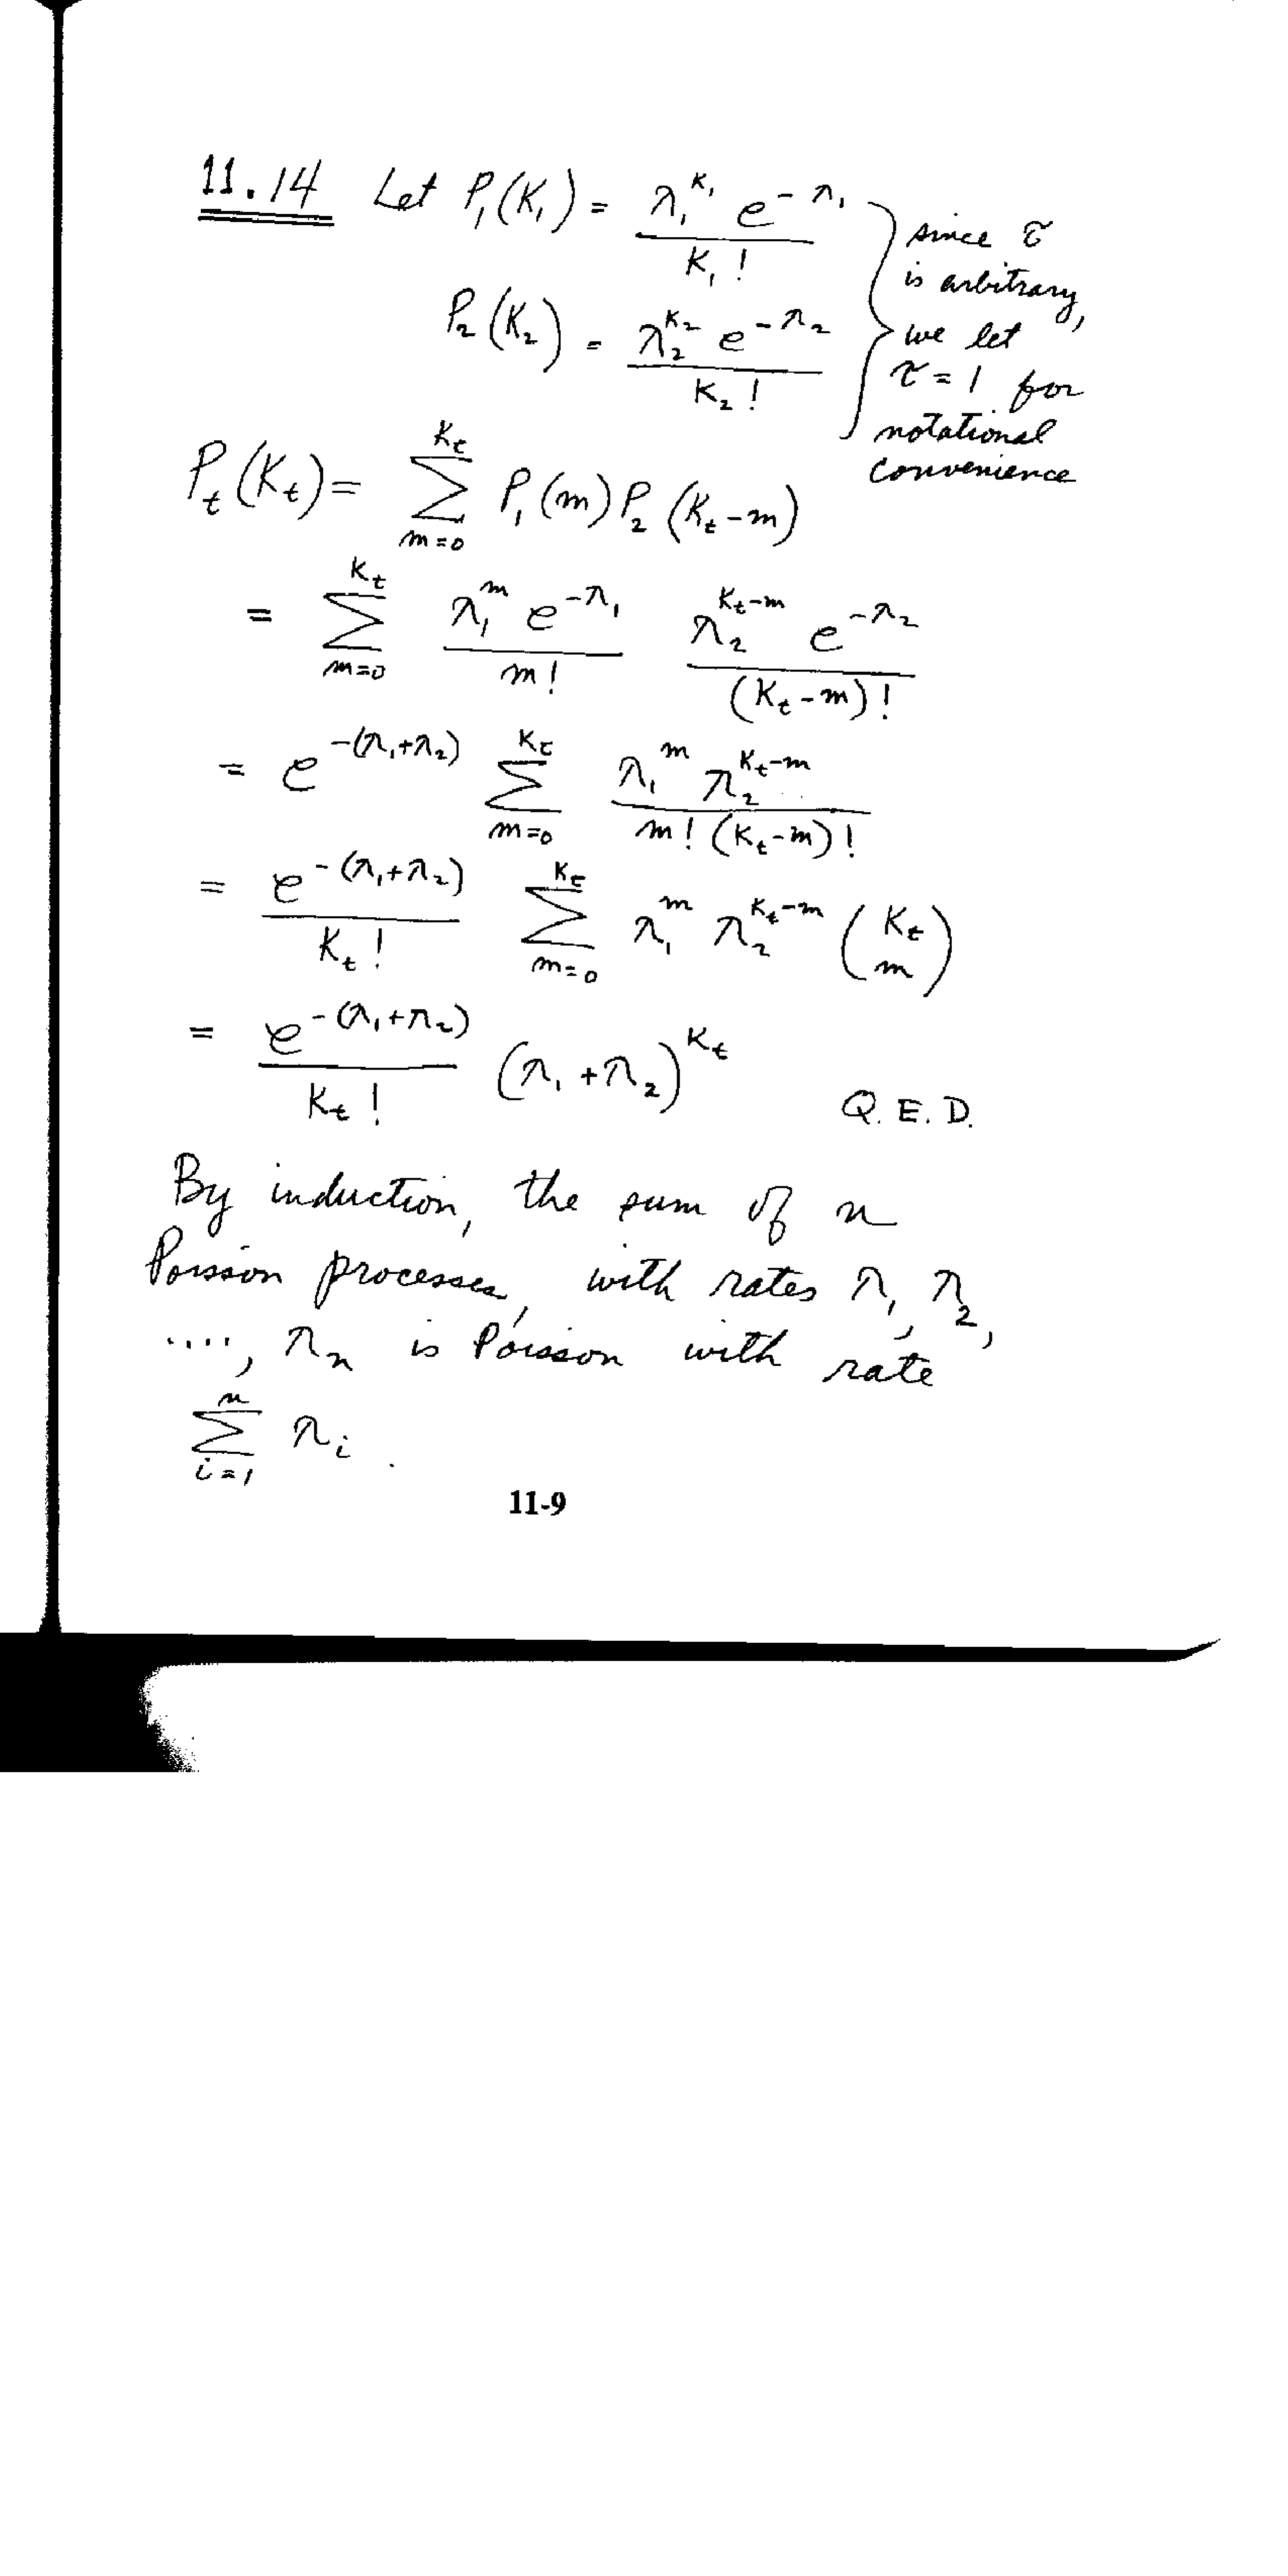 11.14 Let P₁(K₁) = λ₁^K₁ e^-λ₁ / K₁!
P₂(K₂) = λ₂^K₂ e^-λ₂ / K₂!
since τ
is arbitrary,
we let
τ = 1 for
notational
convenience
Pₜ(Kₜ) = Σ_{m=0}^{Kₜ} P₁(m) P₂(Kₜ-m)
= Σ_{m=0}^{Kₜ} λ₁^m e^-λ₁ / m! λ₂^{Kₜ-m} e^-λ₂ / (Kₜ-m)!
= e^-(λ₁+λ₂) Σ_{m=0}^{Kₜ} λ₁^m λ₂^{Kₜ-m} / m! (Kₜ-m)!
= e^-(λ₁+λ₂) / Kₜ! Σ_{m=0}^{Kₜ} λ₁^m λ₂^{Kₜ-m} (Kₜ m)
= e^-(λ₁+λ₂) / Kₜ! (λ₁+λ₂)^Kₜ
Q.E.D.
By induction, the sum of n
Poisson processes, with rates λ₁, λ₂,
...., λₙ is Poisson with rate
Σ_{i=1}^{n} λᵢ.
11-9